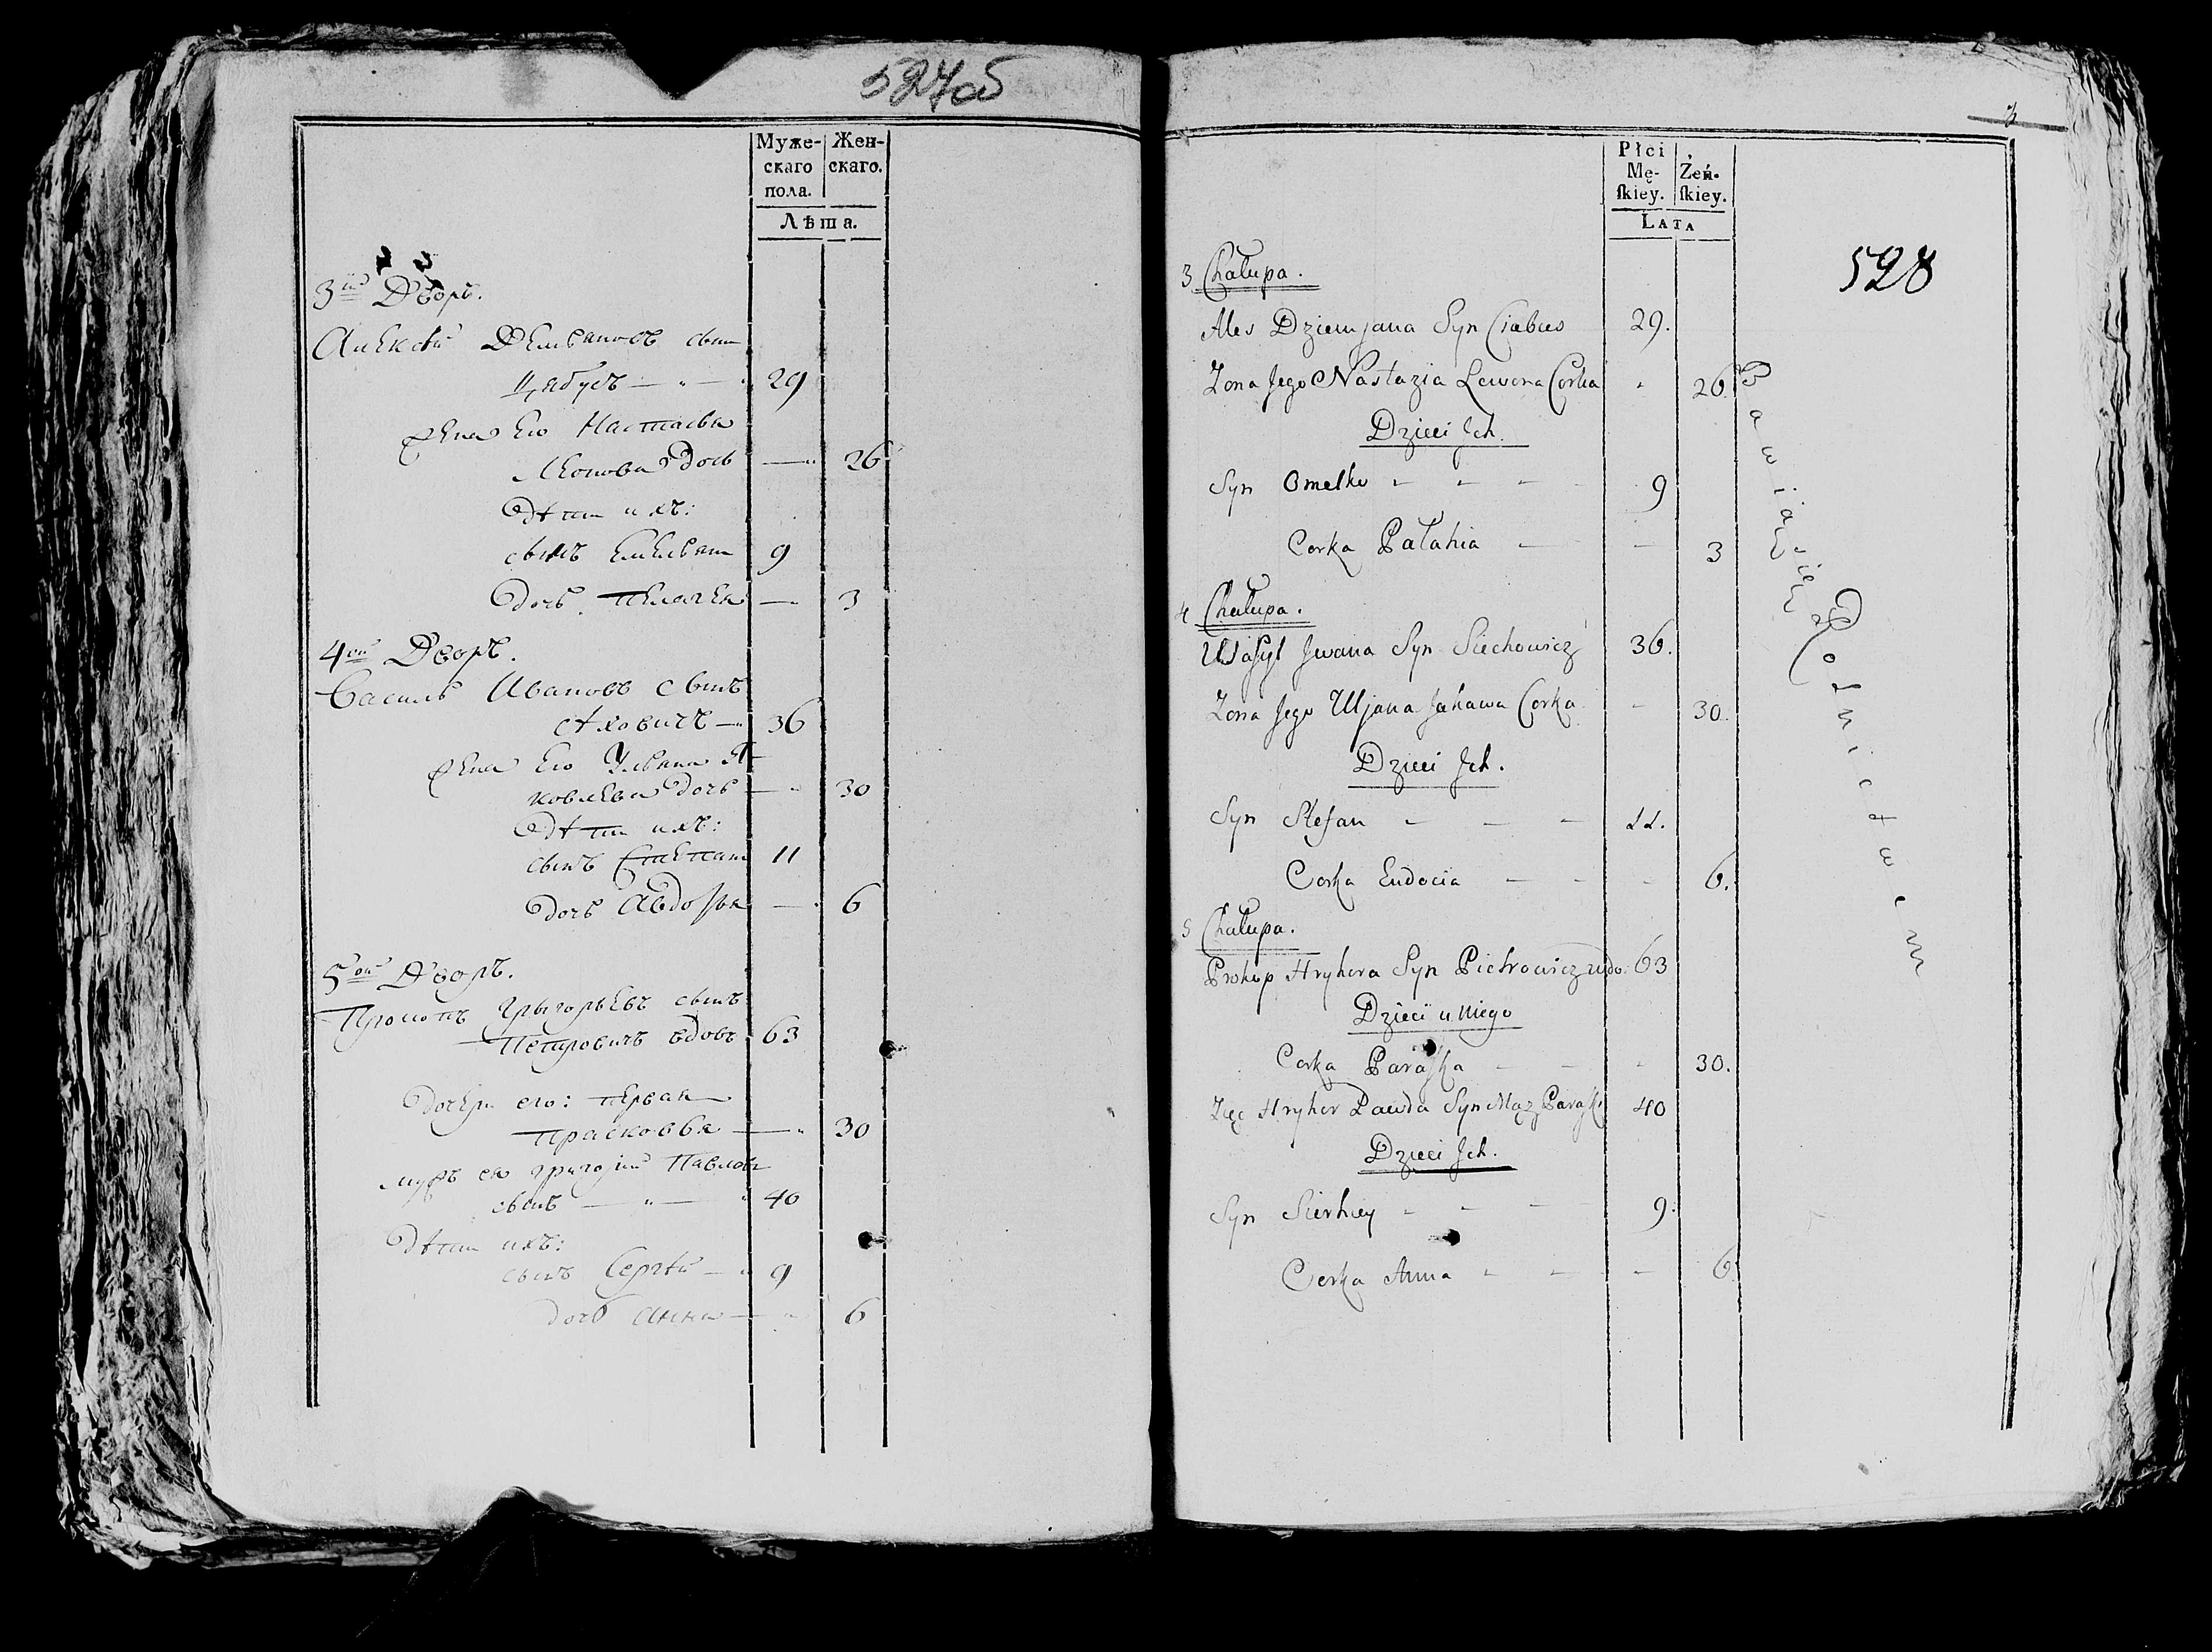 527об
Муже-
скаго
пола.
Жен-
скаго.
Лѣта.
3ій Дворъ.
Алексѣй Демьяновъ сынъ
Цябусъ — " — " 29
Жена Его Настасья
Леонова Дочь — " 26
Дѣти ихъ:
сынъ Емельянъ 9
Дочь Пелагея — 3
4ый Дворъ.
Василь Ивановъ сынъ
Сѣховичъ — 36
Жена Его Ульяна Я-
ковлева Дочь — 30
Дѣти ихъ:
сынъ Степанъ 11
Дочь Авдотья — 6
5ый Дворъ.
Прокопъ Грыгорьевъ сынъ
Петровичъ вдовъ 63
Дочери его: первая
Прасковья — " 30
мужъ ея Григорій Павловъ
сынъ — " — " 40
Дѣти ихъ:
сынъ Сергѣй — " 9
дочь Анна — " 6
Płci
Mę-
ſkiey.
Żeń-
ſkiey.
LATA
528
3 Chałupa.
Ales Dziemjana Syn Ciabus 29.
Zona Jego Nastazia Lewona Corka - 26
Dzieci Ich.
Syn Omelko - - - 9
Corka Pałahia — — 3
4 Chałupa.
Wasyl Jwana Syn Siechowicz 36.
Zona Jego Uljana Jakawa Corka - 30.
Dzieci Ich.
Syn Stefan - — - 11.
Corka Eudocia — - - 6.
5 Chałupa.
Prokop Hryhora Syn Pietrowicz wdo: 63
Dzieci u Niego
Corka Paraſka — - - 30.
Zięc Hryhor Pawła Syn Mąz Paraſki 40
Dzieci Ich.
Syn Sierhiey - - - 9.
Corka Anna - - - 6.
Bawiący się Rolnictwem